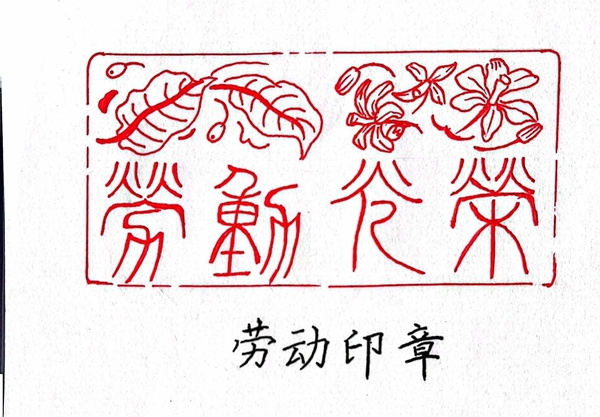 勞動光榮
劳动印章